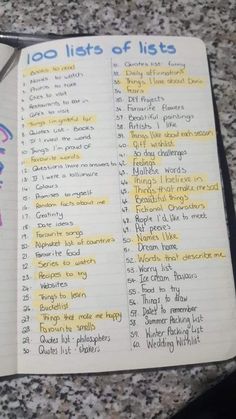 100 lists of lists
1. Books to read
2. Movies to watch
3. Photos to take
4. Cities to visit
5. Restaurants to eat in
6. Cafes to visit
7. Things I'm grateful for
8. Quotes List - Books
9. If I ruled the world
10. Things I'm proud of
11. Favourite words
12. Questions I have no answers to
13. If I were a billionaire
14. Colours
15. Promises to myself
16. Random facts about me
17. Creativity
18. Date ideas
19. Favourite songs
20. Alphabet list of countries
21. Favourite food
22. Series to watch
23. Recipes to try
24. Websites
25. Things to learn
26. Bucketlist
27. Things that make me happy
28. Favourite smells
29. Quotes list - philosophers
30. Quotes list -
31. Quotes list - funny
32. Daily affirmations
33. Things I love about
34. Fears
35. DIY Projects
36. Favourite flowers
37. Beautiful paintings
38. Artists I like
39. Things I like about each season
40. Gift wishlist
41. 30 day challenges
42. Feelings
43. Maltese words
44. Things I believe in
45. Things that make me sad
46. Beautiful things
47. Fictional Characters
48. People I'd like to meet
49. Pet peeves
50. Names I like
51. Dream home
52. Words that describe me
53. Worry list
54. Ice cream flavours
55. Food to try
56. Things to draw
57. Dates to remember
58. Summer Packing List
59. Winter Packing List
60. Wedding Wishlist